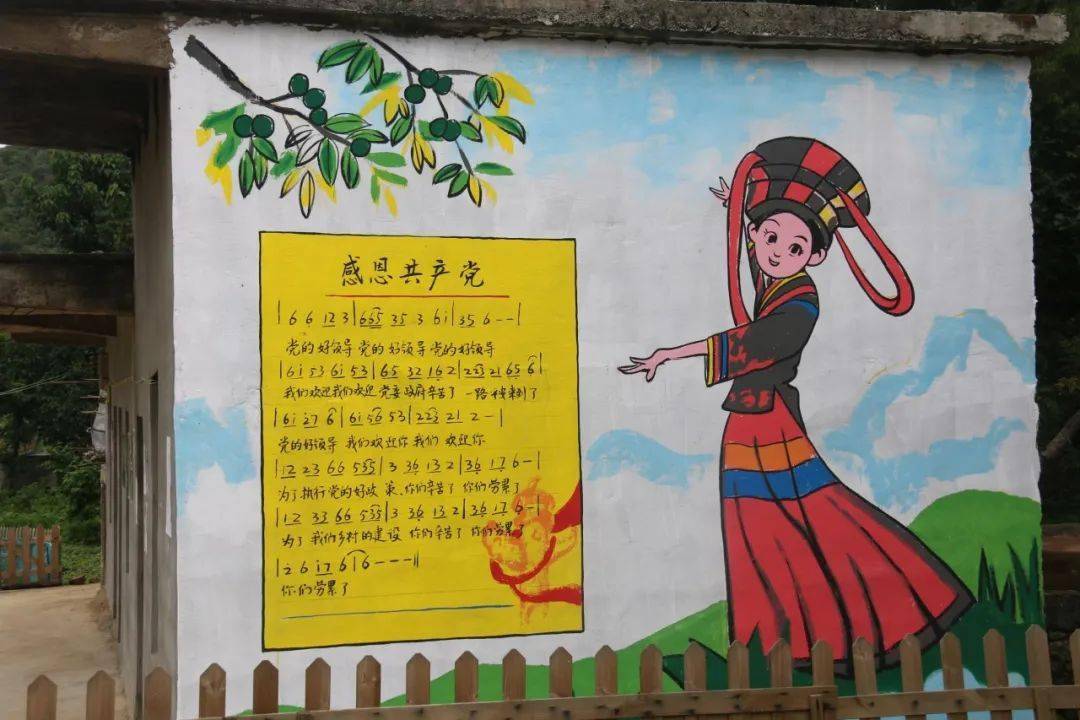 感恩共产党
|6 6 12 3|665 35 3 6i|35 6--|
党的好领导 党的好领导 党的好领导
|6i 53 6i 53|65 32 16 2|223 21 65 6|
我们欢迎我们欢迎 党委政府辛苦了 一路来到了
|6i 27 6|6i 56 53|223 21 2-|
党的好领导 我们欢迎你 我们 欢迎你
|12 23 66 535|3 36 13 2|36 17 6-|
为了执行党的好政策、你们辛苦了 你们劳累了
|12 33 66 535|3 36 13 2|36 17 6-|
为了我们乡村的建设 你们辛苦了 你们劳累了
|2 6 17 6|6---||
你们劳累了